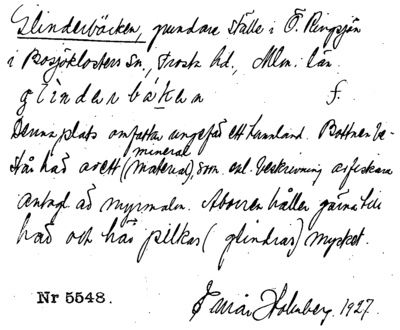 Glinderbäcken, grundare ställe i Ö. Ringsjön
i Bosjöklosters sn, Frosta hd, Mlm. län.
glìnderbäkɘn f.
Denna plats omfattar ungefär ett tunnland. Bottnen be-
står här av ett (mineral material), som enl. beskrivning av fiskarna
antagl är myrmalm. Aborren håller gärna till
här och här pilkas (glindras) mycket.
Nr 5548.
Einar Holmberg. 1927.